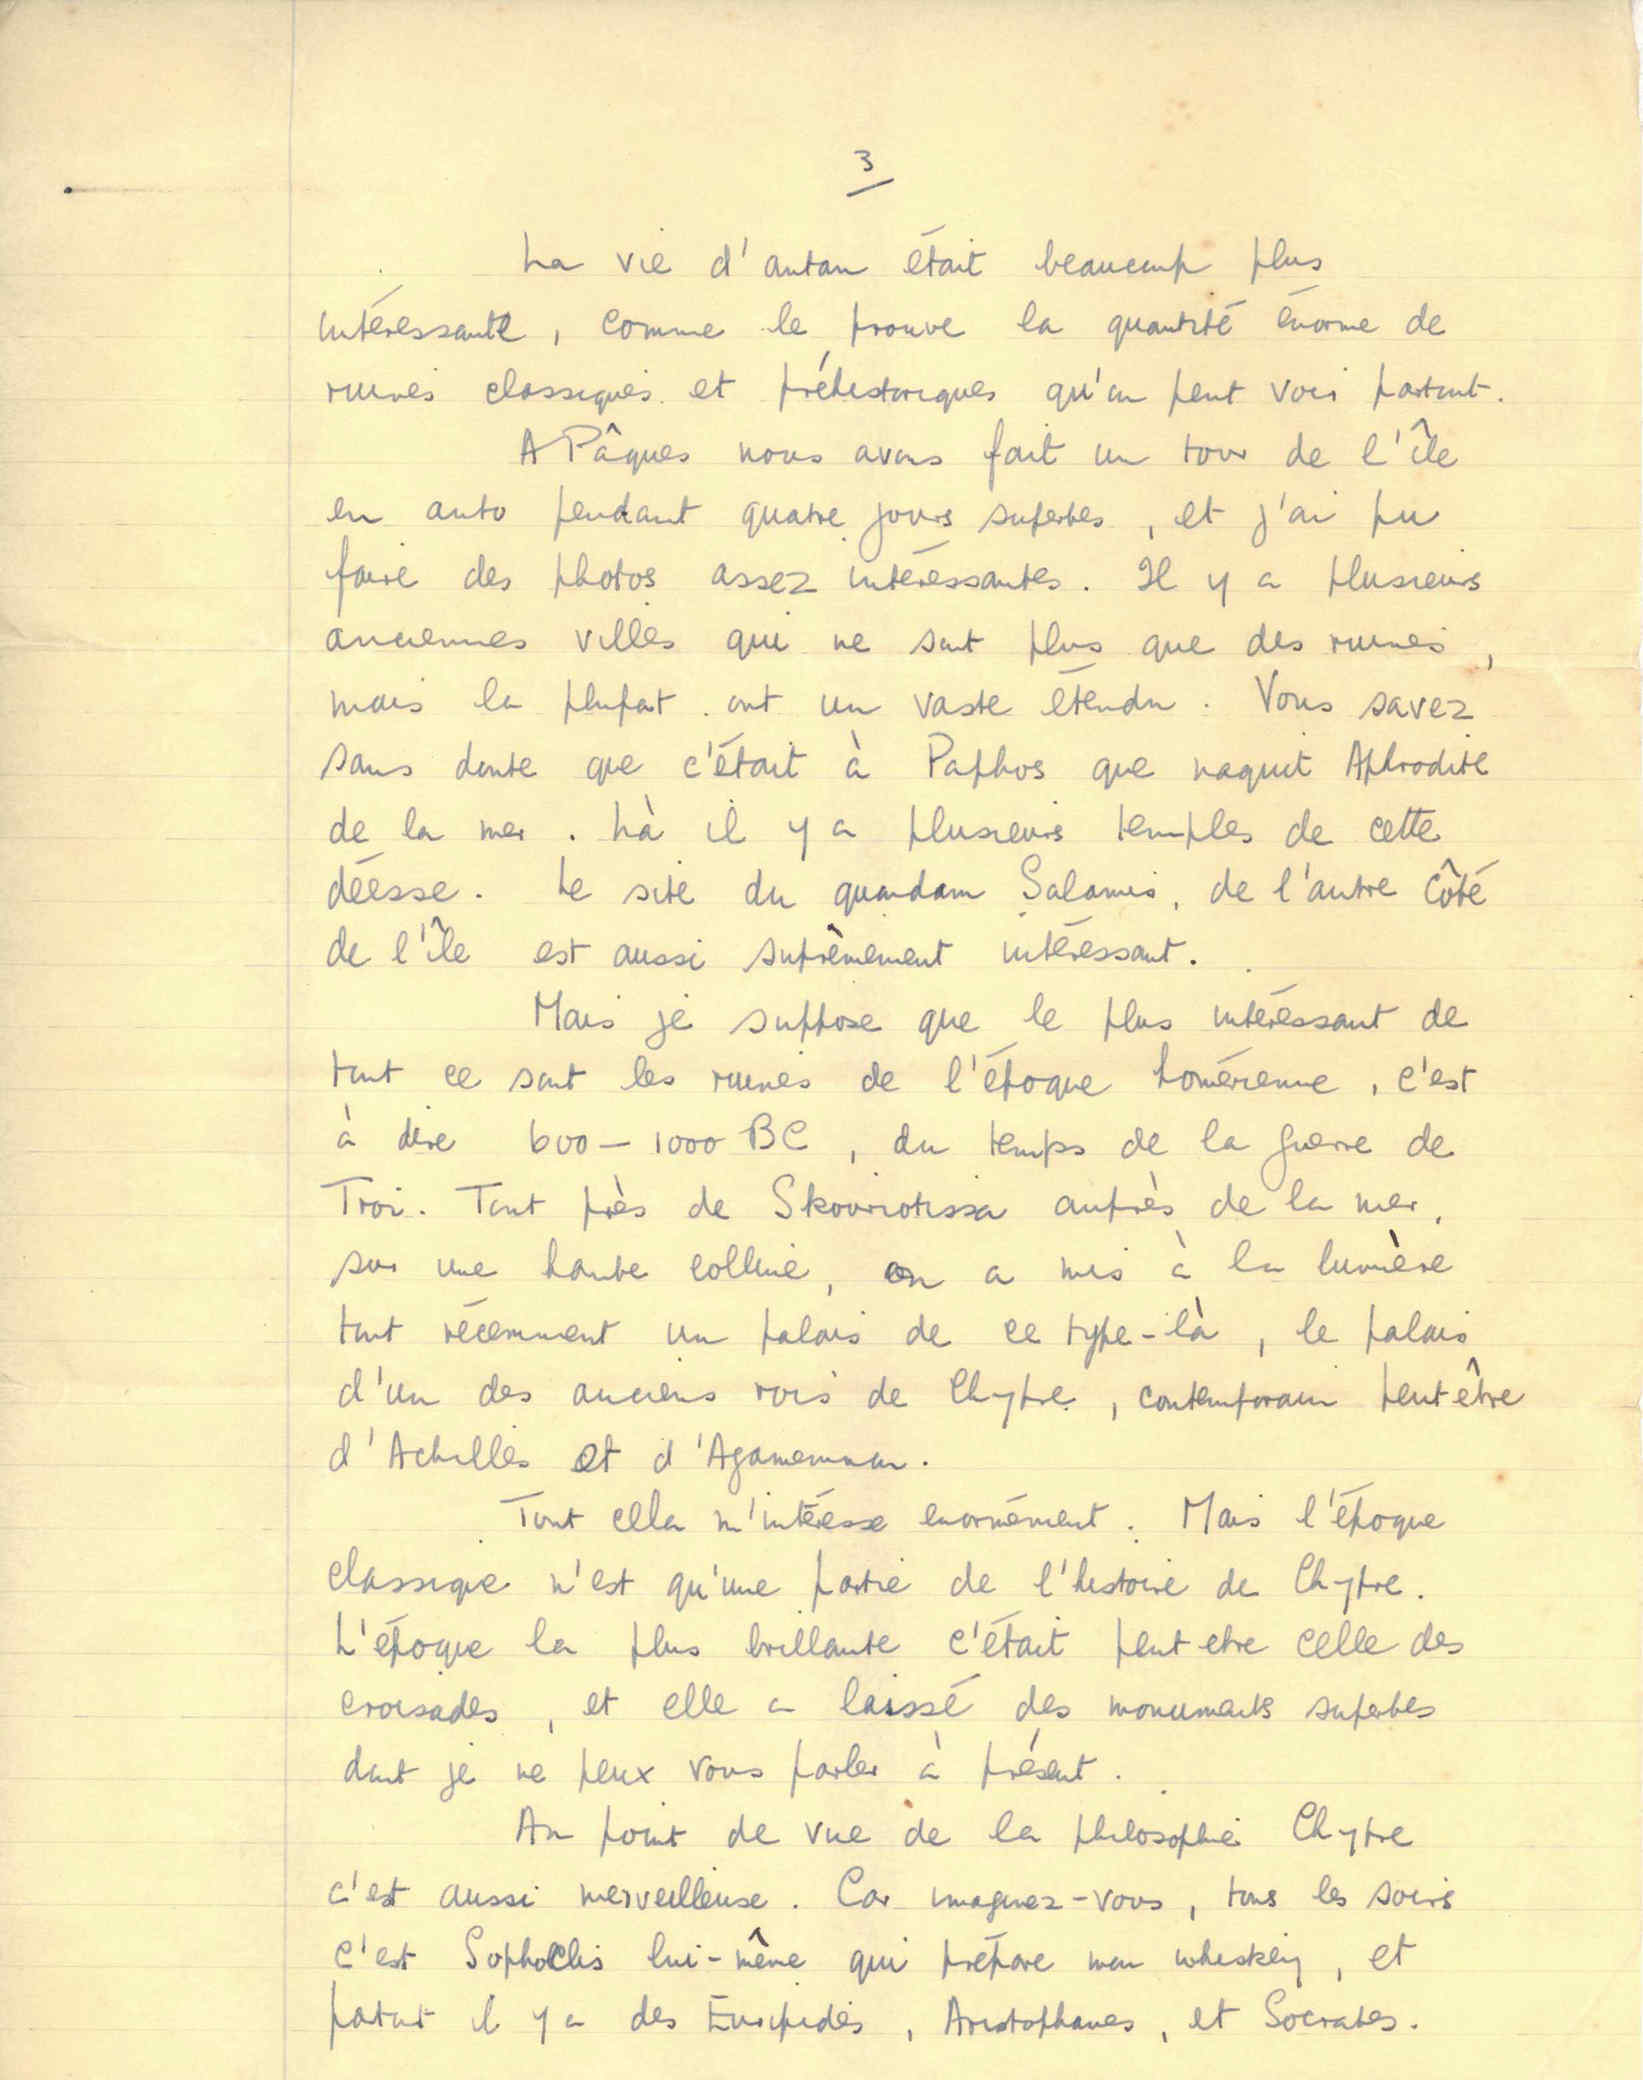 3
La vie d'antan était beaucoup plus
intéressante, comme le prouve la quantité énorme de
ruines classiques et préhistoriques qu'on peut voir partout.
A Pâques nous avons fait un tour de l'île
en auto pendant quatre jours superbes, et j'ai pu
faire des photos assez intéressantes. Il y a plusieurs
anciennes villes qui ne sont plus que des ruines,
mais la plupart ont un vaste étendu. Vous savez
sans doute que c'était à Paphos que naquit Aphrodite
de la mer. Là il y a plusieurs temples de cette
déesse. Le site du quondam Salamis, de l'autre côté
de l'île est aussi suprèmement intéressant.
Mais je suppose que le plus intéressant de
tout ce sont les ruines de l'époque homérienne, c'est
à dire 600 – 1000 BC, du temps de la guerre de
Troi. Tout près de Skouriotissa auprès de la mer,
sur une haute colline, on a mis à la lumière
tout récemment un palais de ce type-là, le palais
d'un des anciens rois de Chypre, contemporain peut être
d'Achilles et d'Agamemnon.
Tout cela m'intéresse enormément. Mais l'époque
classique n'est qu'une partie de l'histoire de Chypre.
L'époque la plus brillante c'était peut etre celle des
croisades, et elle a laissé des monuments superbes
dont je ne peux vous parler à présent.
Au point de vue de la philosophie Chypre
c'est aussi merveilleuse. Car imaginez-vous, tous les soirs
c'est Sophoclis lui-même qui prépare mon whiskey, et
partout il y a des Euripides, Aristophanes, et Socrates.